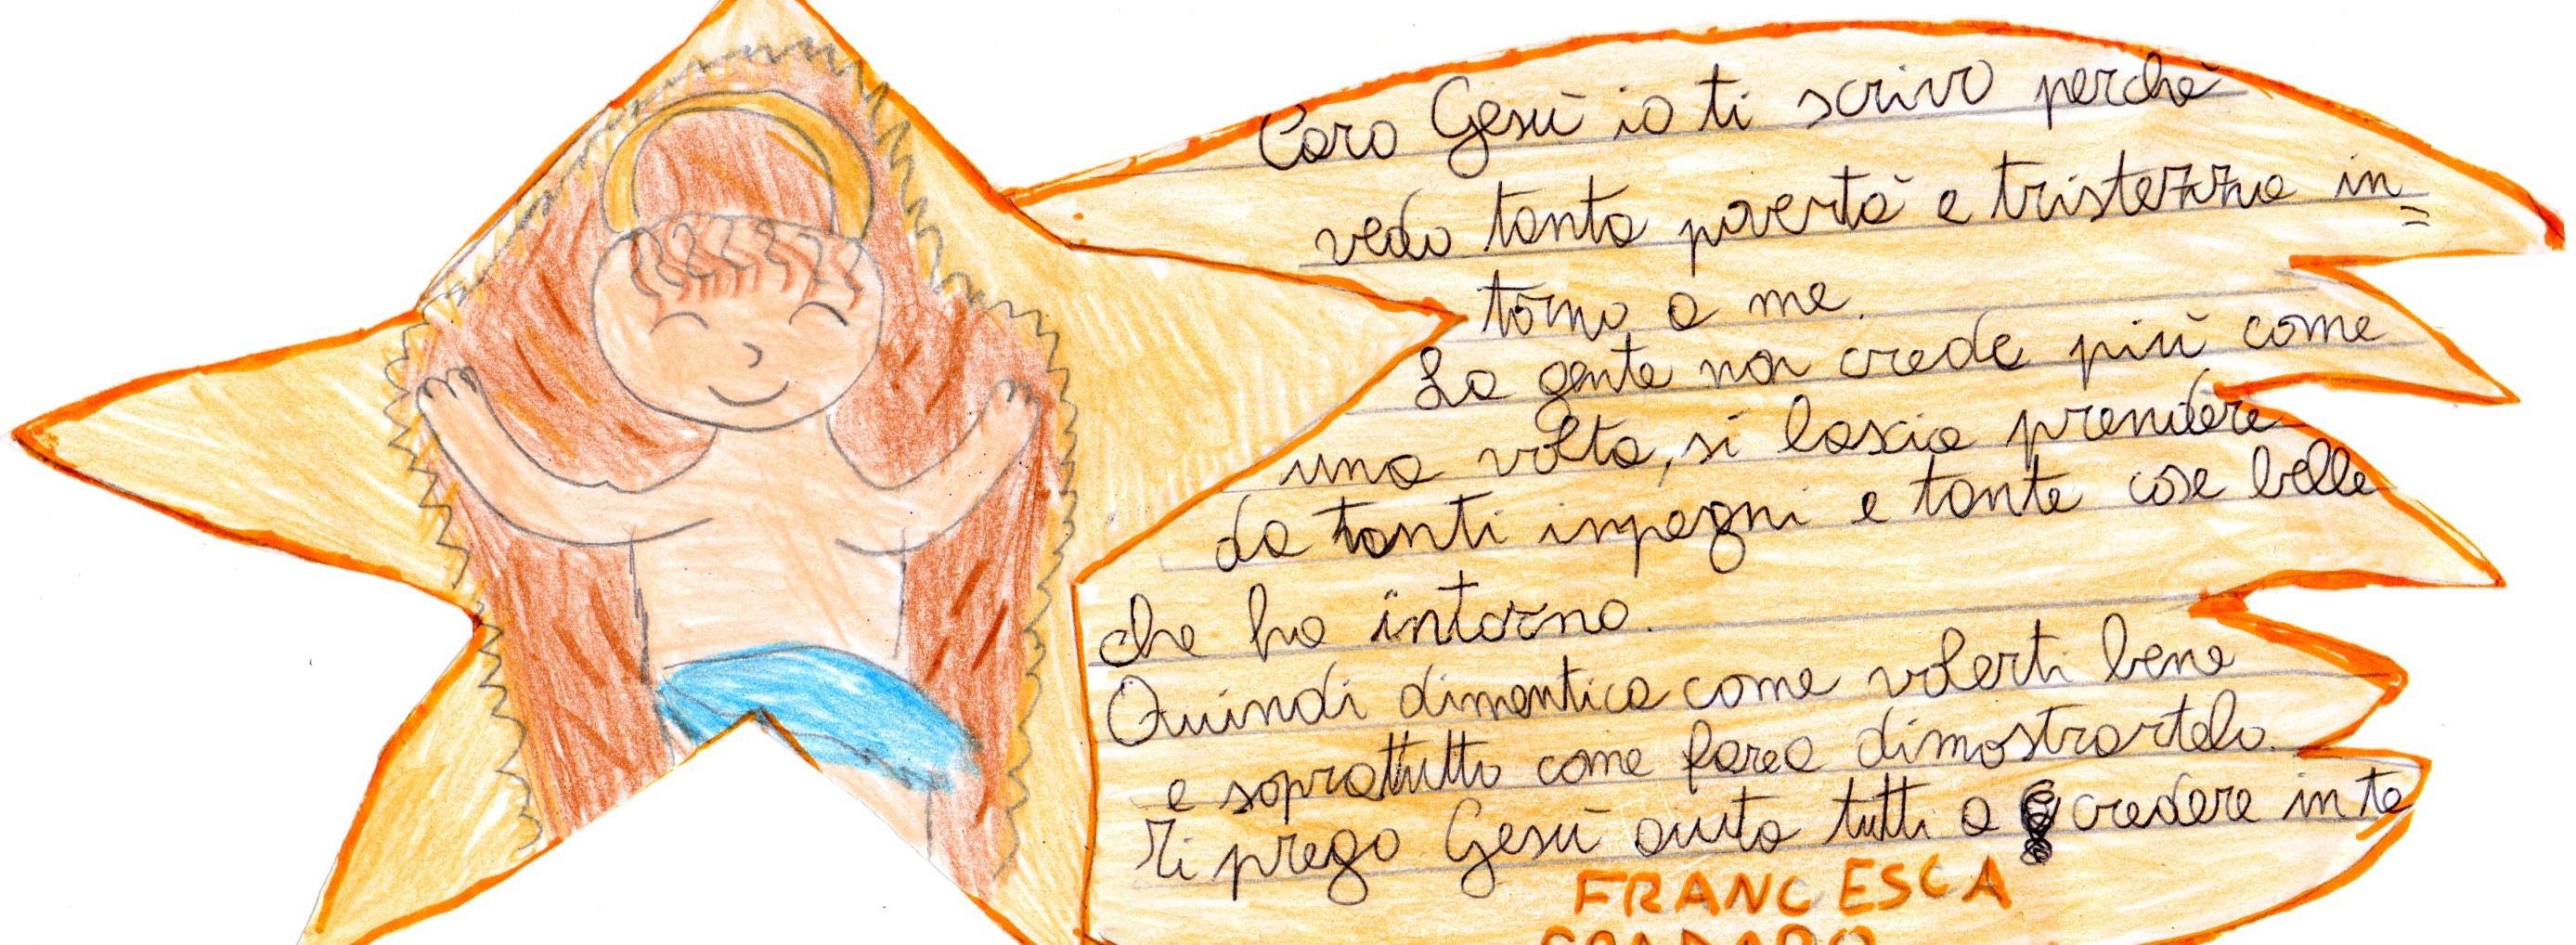 Caro Gesù io ti scrivo perchè
vedo tanta povertà e tristezza in=
torno a me.
La gente non crede più come
una volta, si lascia prendere
da tanti impegni e tante cose belle
che ha intorno.
Quindi dimentica come volerti bene
e soprattutto come fare a dimostrartelo.
Ti prego Gesù aiuta tutti a credere in te
FRANCESCA